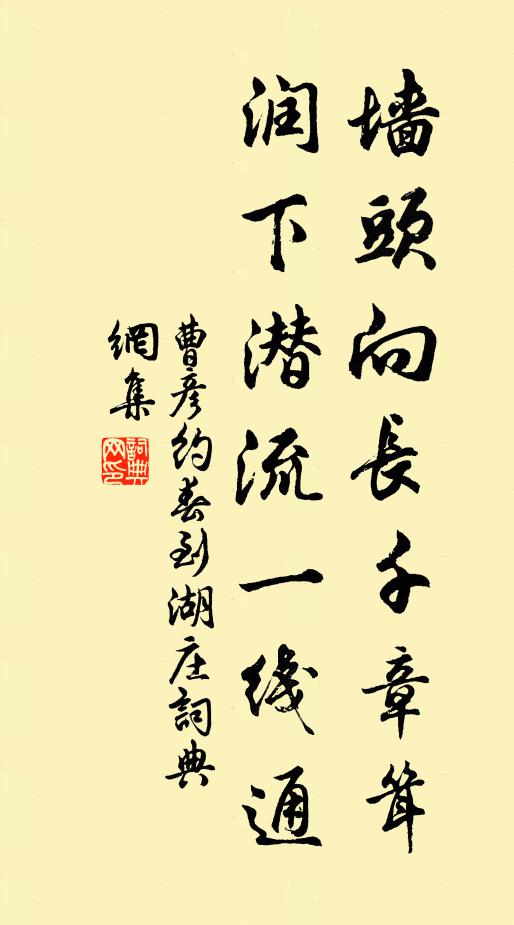 墙頭向長千章耸
润下潜流一线通
曹彦约春到湖庄詞典
網集
詞典网印